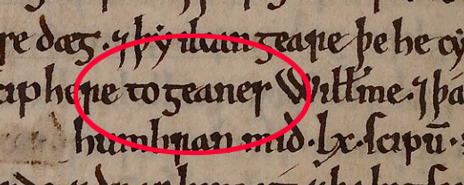 re dæg. ⁊ þy ilcan geare þe he cy
ciphere togeanes Willme. ⁊ þa
humbran mid .lx. scipū.